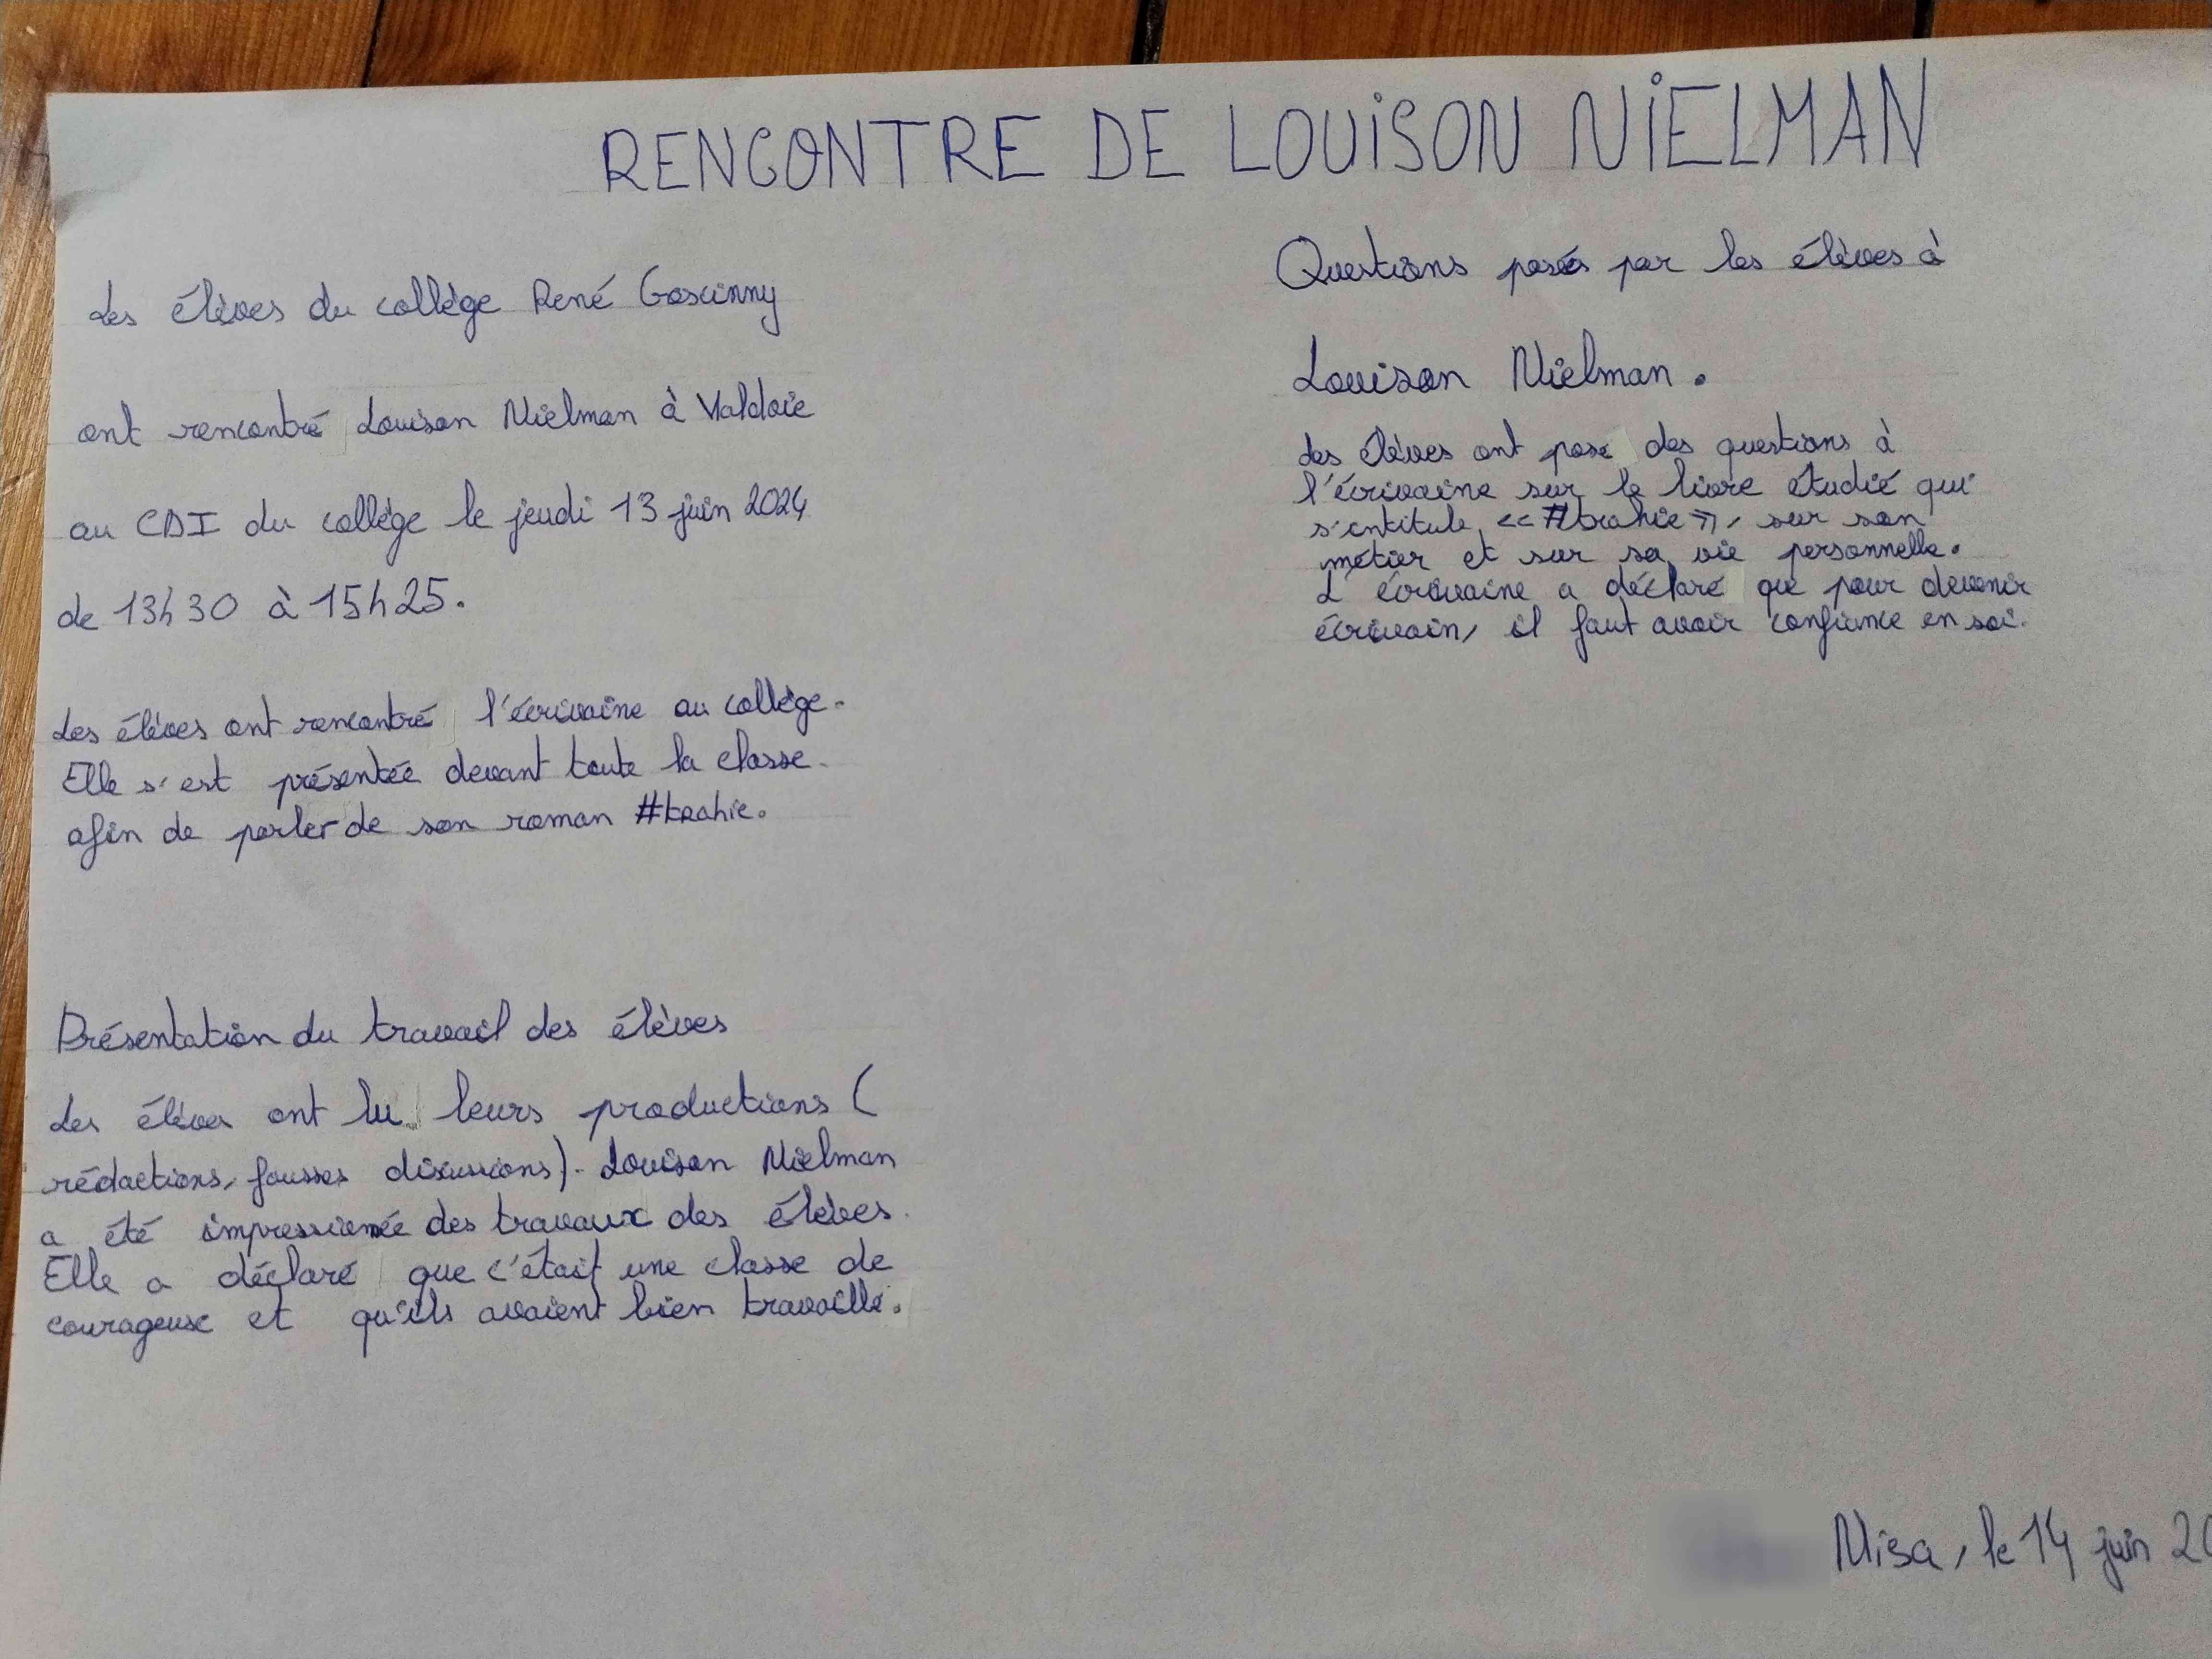 RENCONTRE DE LOUiSON NiELMAN
Les élèves du collège René Goscinny
ont rencontré Louison Nielman à Valdoie
au CDI du collège le jeudi 13 juin 2024
de 13h30 à 15h25.
Les élèves ont rencontré l'écrivaine au collège.
Elle s'est présentée devant toute la classe
afin de parler de son roman #trahie.
Présentation du travail des élèves
Les élèves ont lu leurs productions (
rédactions, fausses discussions). Louison Nielman
a été impressionée des travaux des élèves.
Elle a déclaré que c'était une classe de
courageuse et qu'ils avaient bien travaillé.
Questions posés par les élèves à
Louison Nielman.
Les élèves ont posé des questions à
l'écrivaine sur le livre étudié qui
s'intitule << #trahie >>, sur son
métier et sur sa vie personnelle.
L'écrivaine a déclaré que pour devenir
écrivain, il faut avoir confiance en soi.
Misa, le 14 juin 20